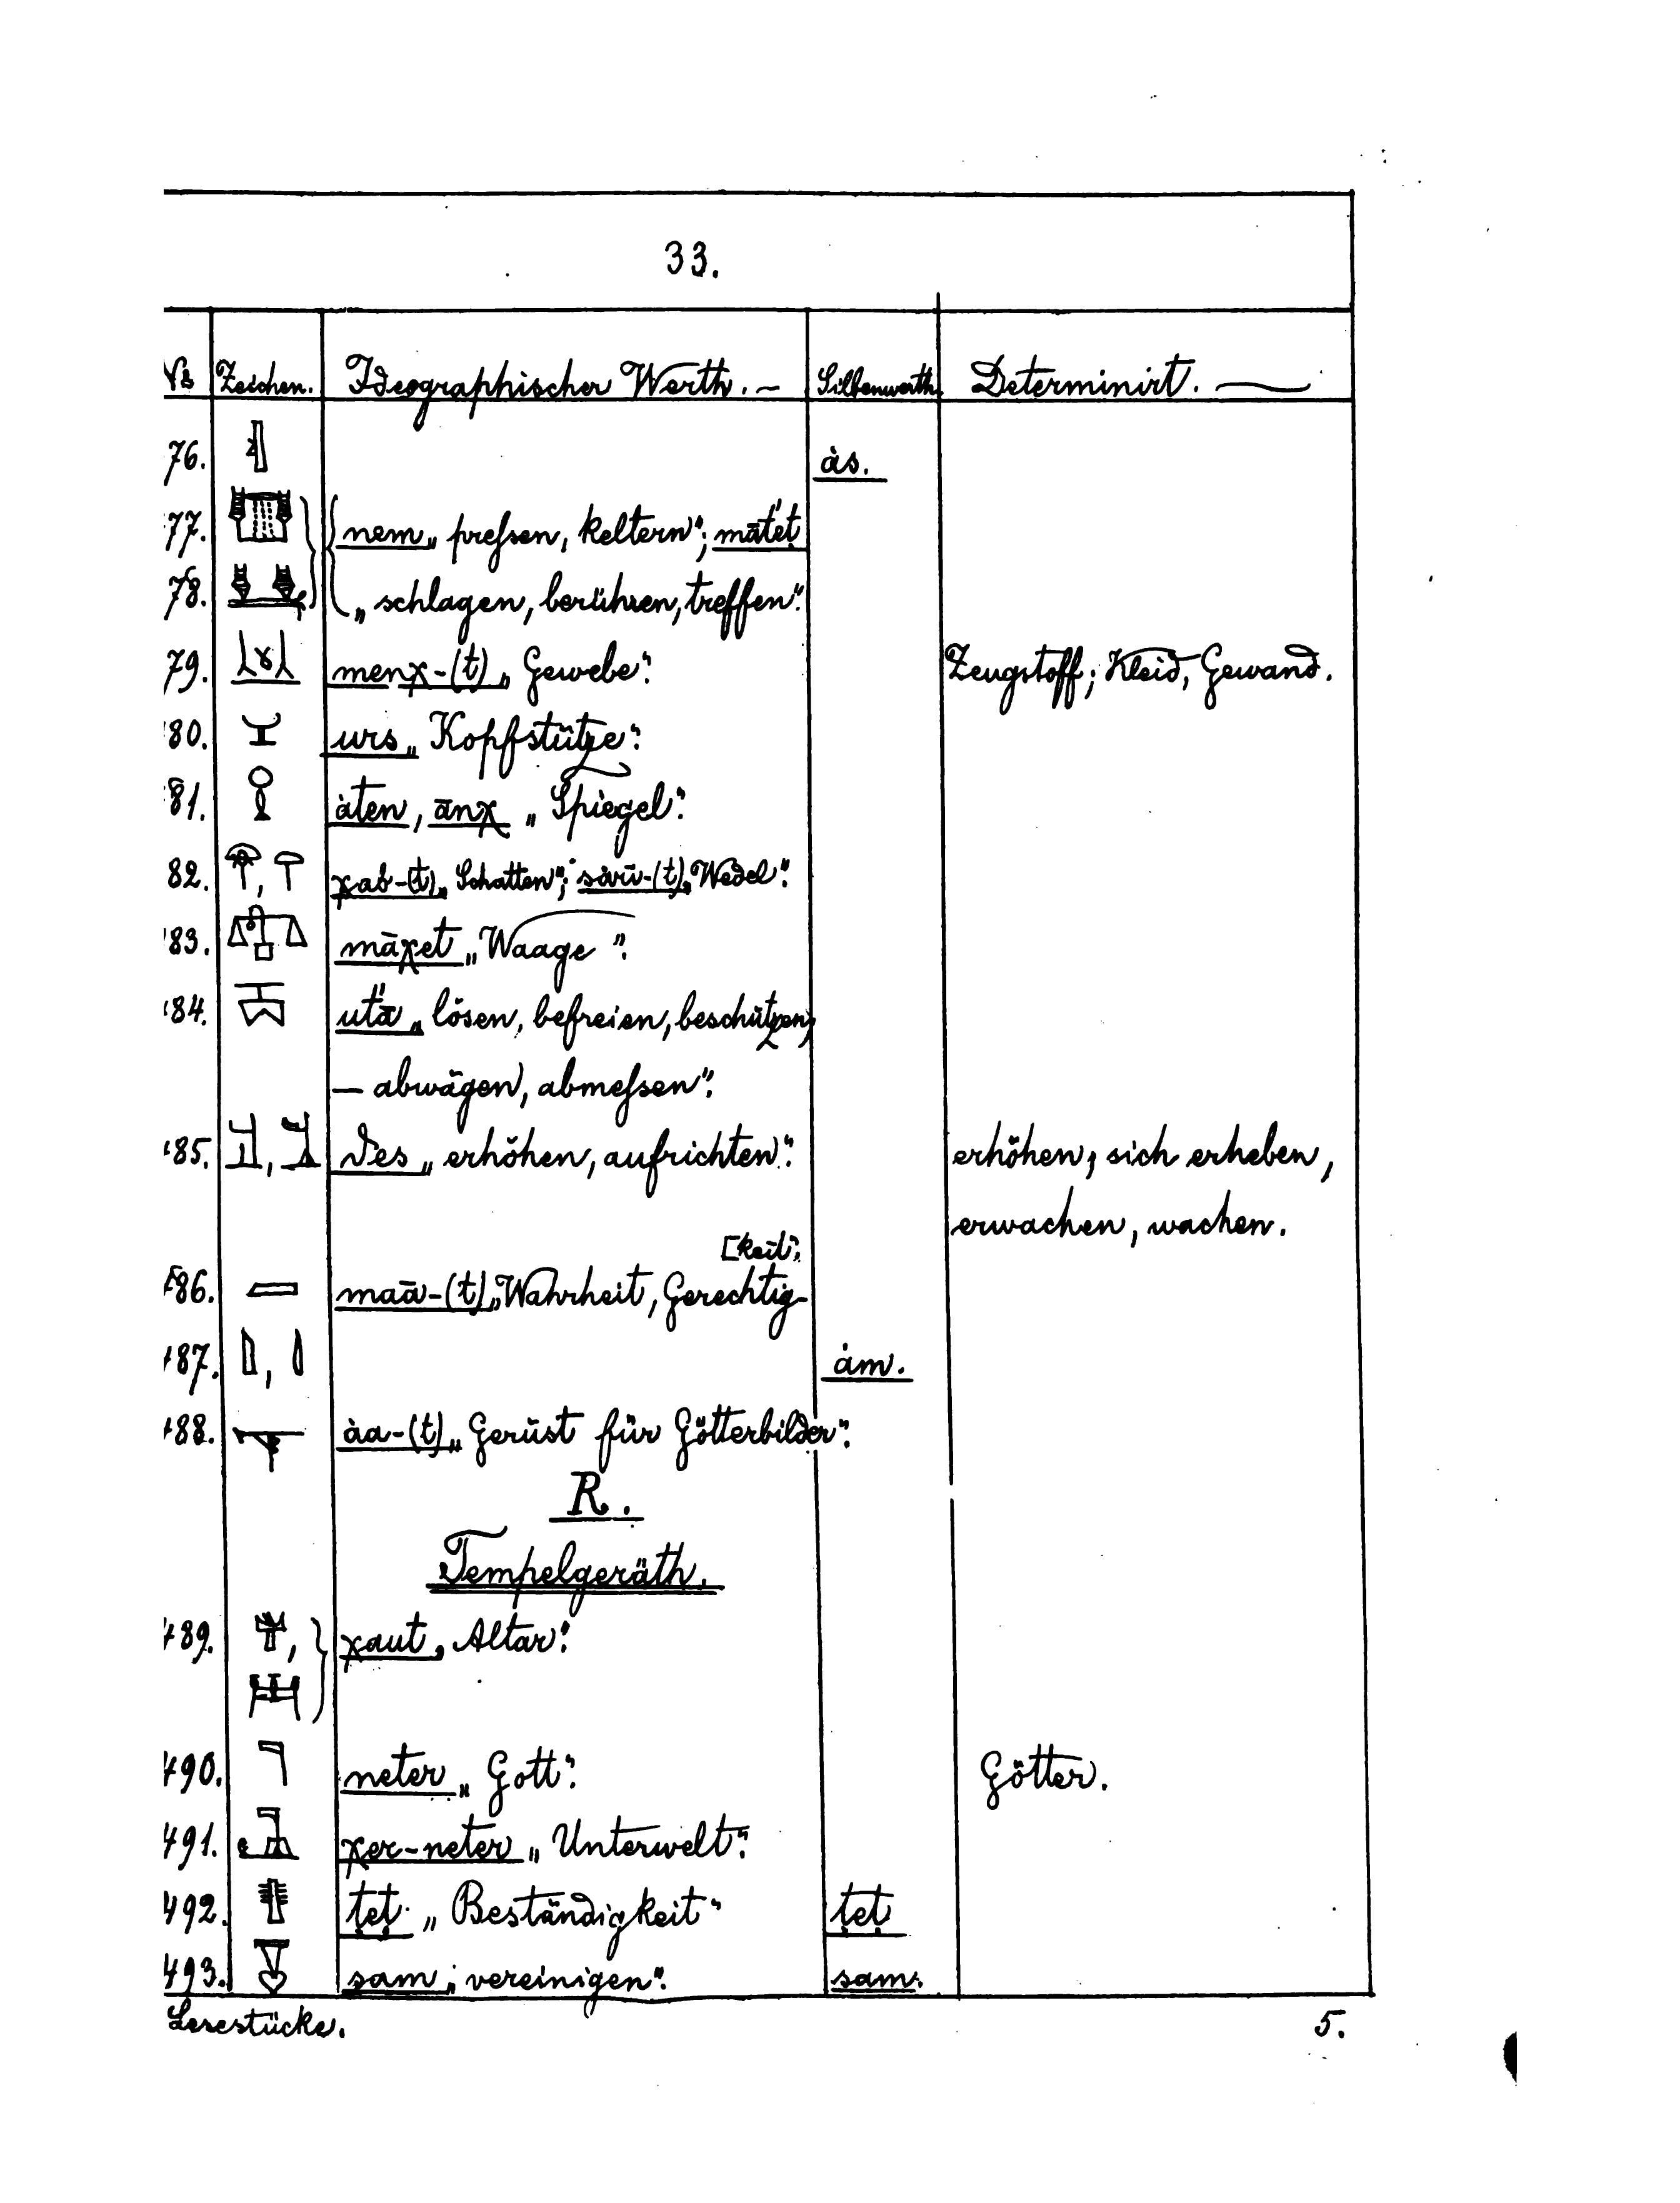 33.
№ Zeichen. Ideographischer Werth. — Silbenwerth. Determinirt. —
76. ȧs.
77. nem „preſsen, keltern“; māt́eṭ
78. „schlagen, berühren, treffen“.
79. menχ-(t) „Gewebe“. Zeugstoff; Kleid, Gewand.
80. urs „Kopfstütze“.
81. ȧten, ānχ „Spiegel“.
82. , χab-(t) „Schatten“; sȧrū-(t) „Wedel“.
83. māχet „Waage“.
84. ut́ā „lösen, befreien, beschützen,
— abwägen, abmeſsen“.
485. , des „erhöhen, aufrichten“. erhöhen, sich erheben,
erwachen, wachen.
[keit“.
486. maā-(t) „Wahrheit, Gerechtig-
487. , ȧm.
488. ȧa-(t) „Gerüst für Götterbilder“.
R.
Tempelgeräth.
489. , χaut „Altar“.
490. neter „Gott“. Götter.
491. χer-neter „Unterwelt“.
492. ṭeṭ „Beständigkeit“ ṭeṭ
493. sam „vereinigen“. sam.
Lesestücke. 5.